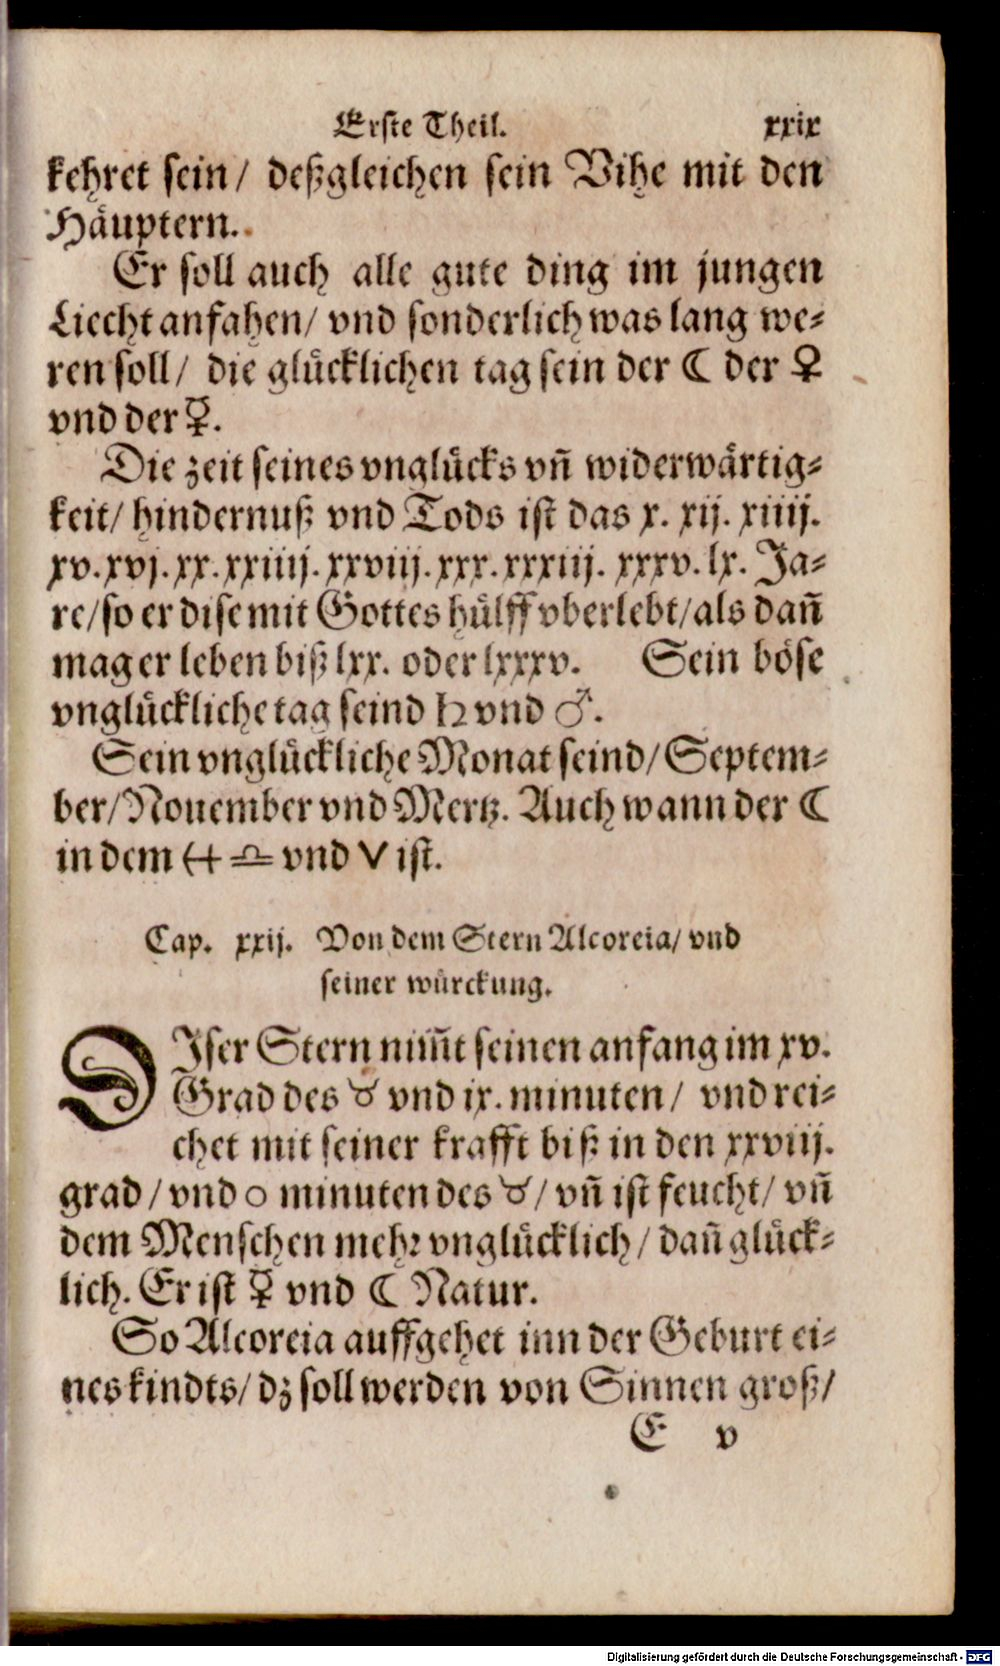 Erste Theil. xxix
kehret sein/ deßgleichen sein Vihe mit den
Häuptern.
Er soll auch alle gute ding im jungen
Liecht anfahen/ vnd sonderlich was lang we⸗
ren soll/ die glücklichen tag sein der ☾ der ♀
vnd der ☿.
Die zeit seines vnglücks vñ widerwärtig⸗
keit/ hindernuß vnd Tods ist das x. xij. xiiij.
xv. xvj. xx. xxiiij. xxviij. xxx. xxxiij. xxxv. lx. Ja⸗
re/ so er dise mit Gottes hülff vberlebt/ als dañ
mag er leben biß lxx. oder lxxxv. Sein böse
vnglückliche tag seind ♄ vnd ♂.
Sein vnglückliche Monat seind/ Septem⸗
ber/ Nouember vnd Mertz. Auch wann der ☾
in dem ♐ ♎ vnd ♈ ist.
Cap. xxij. Von dem Stern Alcoreia/ vnd
seiner würckung.
DIser Stern nim̄t seinen anfang im xv.
Grad des ♉ vnd ix. minuten/ vnd rei⸗
chet mit seiner krafft biß in den xxviij.
grad/ vnd o minuten des ♉/ vñ ist feucht/ vñ
dem Menschen mehr vnglücklich/ dañ glück⸗
lich. Er ist ☿ vnd ☾ Natur.
So Alcoreia auffgehet inn der Geburt ei⸗
nes kindts/ dz soll werden von Sinnen groß/
E v
Digitalisierung gefördert durch die Deutsche Forschungsgemeinschaft - DFG